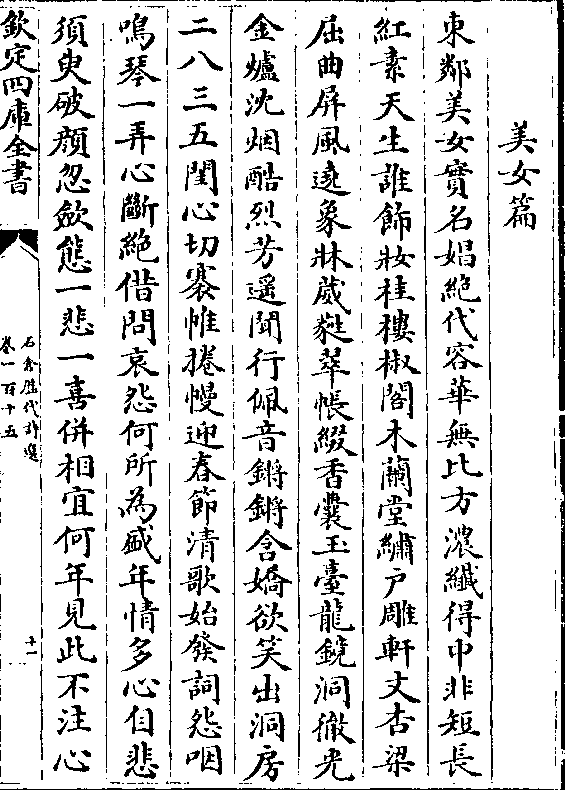 美女篇
東鄰美女實名娼絶代容華無比方濃纖得中非短長
紅素天生誰飾妝桂樓椒閣木蘭堂繡户雕軒文杏梁
屈曲屏風遶象牀葳蕤翠帳綴香囊玉臺龍鏡洞徹光
金爐沈烟酷烈芳遥聞行佩音鏘鏘含嬌欲笑出洞房
二八三五閨心切褰帷捲幔迎春節清歌始發詞怨咽
鳴琴一弄心斷絶借問哀怨何所為盛年情多心自悲
須臾破顔忽斂態一悲一喜併相宜何年見此不注心
欽定四庫全書
石倉歴代詩選
卷一百十五
十一